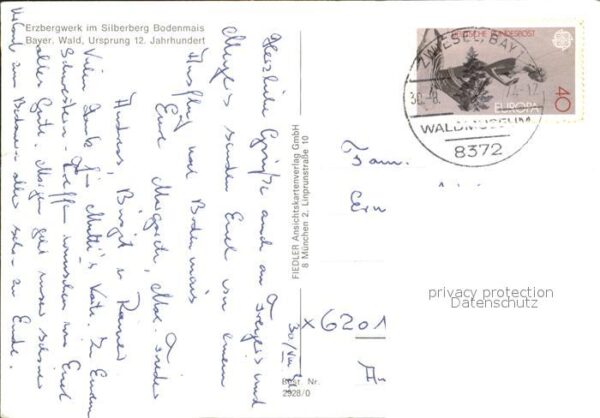 Erzbergwerk im Silberberg Bodenmais
Bayer. Wald, Ursprung 12. Jahrhundert
Herzliche Grüße auch an Freyeis und
senden Euch von einem
Ausflug nach Bodenmais
Eure
Andreas, Birgit u. Rainer
Vielen Dank für Mutti's Karte. Zu Eurem
Schwestern-Treffen wünschen wir Euch
alles Gute. Morgen geht unser schöner
Urlaub zum Bedauern aller schon zu Ende.
FIEDLER Ansichtskartenverlag GmbH
8 München 2, Linprunstraße 10
Best. Nr.
2928/0
DEUTSCHE BUNDESPOST
EUROPA
40
ZWIESEL, BAY
30.-8.
-12
WALDMUSEUM
8372
Fam.
x 6201
privacy protection
Datenschutz